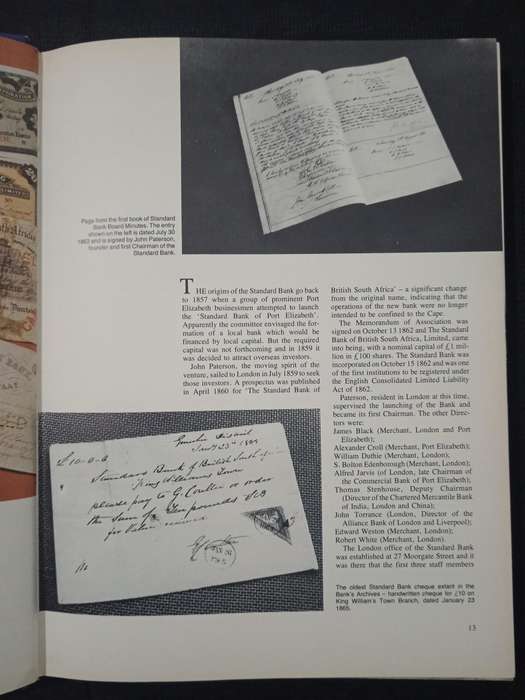 Page from the first book of Standard
Bank Board Minutes. The entry
shown on the left is dated July 30
1862 and is signed by John Paterson,
founder and first Chairman of the
Standard Bank.
THE origins of the Standard Bank go back
to 1857 when a group of prominent Port
Elizabeth businesmen attempted to launch
the ‘Standard Bank of Port Elizabeth’.
Apparently the committee envisaged the for-
mation of a local bank which would be
financed by local capital. But the required
capital was not forthcoming and in 1859 it
was decided to attract overseas investors.
John Paterson, the moving spirit of the
venture, sailed to London in July 1859 to seek
those investors. A prospectus was published
in April 1860 for ‘The Standard Bank of
British South Africa’ – a significant change
from the original name, indicating that the
operations of the new bank were no longer
intended to be confined to the Cape.
The Memorandum of Association was
signed on October 13 1862 and The Standard
Bank of British South Africa, Limited, came
into being, with a nominal capital of £1 mil-
lion in £100 shares. The Standard Bank was
incorporated on October 15 1862 and was
one of the first institutions to be registered under
the English Consolidated Limited Liability
Act of 1862.
Paterson, resident in London at this time,
supervised the launching of the Bank and
became its first Chairman. The other Direc-
tors were:
James Black (Merchant, London and Port
Elizabeth);
Alexander Croll (Merchant, Port Elizabeth);
William Duthie (Merchant, London);
S. Bolton Edenborough (Merchant, London);
Alfred Jarvis (of London, late Chairman of
the Commercial Bank of Port Elizabeth);
Thomas Stenhouse, Deputy Chairman
(Director of the Chartered Mercantile Bank
of India, London and China);
John Torrance (London, Director of the
Alliance Bank of London and Liverpool);
Edward Weston (Merchant, London);
Robert White (Merchant, London).
The London office of the Standard Bank
was established at 27 Moorgate Street and it
was there that the first three staff members
Standard Bank of British South Africa
King Williams Town
please pay to G. Coulter or order
the Sum of Ten pounds
for Value received
The oldest Standard Bank cheque extant in the
Bank's Archives – handwritten cheque for £10 on
King William's Town Branch, dated January 23
1865.
13